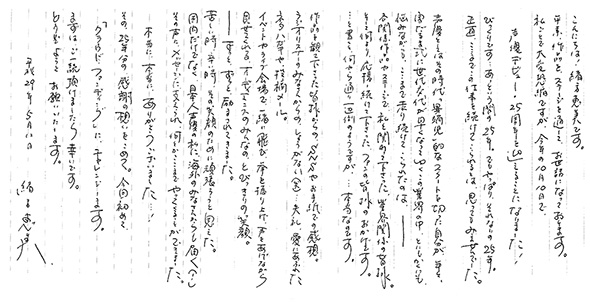 こんにちは！緒方恵美です。
平素、作品やステージを通じて、お世話になっております。
私ごとで大変恐縮ですが、今年の10月10日で
声優デビュー25周年を迎えることになりました…！
びっくりです…あっという間の25年。でもやっぱり、それなりの25年。
正直…ここまでこの仕事を続けてこられるとは、思ってもみませんでした。
声優としてはその 異端児的なスタートを切った自分が、年々、
世代交代が早くなってゆくこの業界の中、
ながら……ここまで走り続けてこられたのは――
各関係作品やステージで、私と関わって下さった、業界関係の皆様、
そして何より、応援し続けて下さった、ファンの皆様のおかげです。
…と書くと何やら通り一遍のようですが…本当なのです。
作品を観て下さった皆様からの、ハガキやお手紙での感想。
ラジオリスナーのみなさんからの、しょうがない(笑)…失礼、愛にあふれた
ネタハガキや投稿メール。
イベントやライブ会場で一緒に飛び、拳を振り上げ、声をあげながら
見せてくれる、 のみんなのとびっきりの笑顔。
――ずっと、ずっと、励まされてきました。
苦しい時、辛い時、その笑顔のために頑張ろうと思った。
国内だけでなく、日本人声優として、海外のみなさんからも届く
その声、メッセージに支えられ、何とかここまでやってくることができました。
本当に、本当に、ありがとうございました…！
その25年分の感謝の想いをこめて、今回初めて
「クラウドファンディング」に、チャレンジします。
まずはご一読頂けましたら幸いです。
どうぞよろしくお願いいたします。
平成29年5月10日
緒方恵美